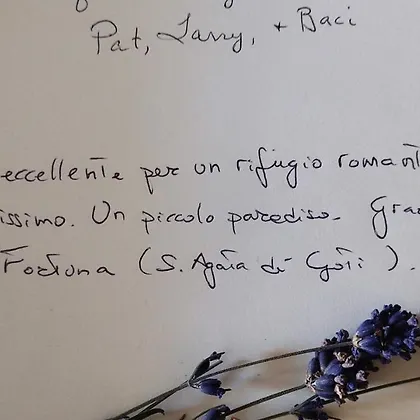 Pat, Larry, + Baci
eccellente per un rifugio romant
issimo. Un piccolo paradiso. Gra
Fortuna (S. Agata di Goti).